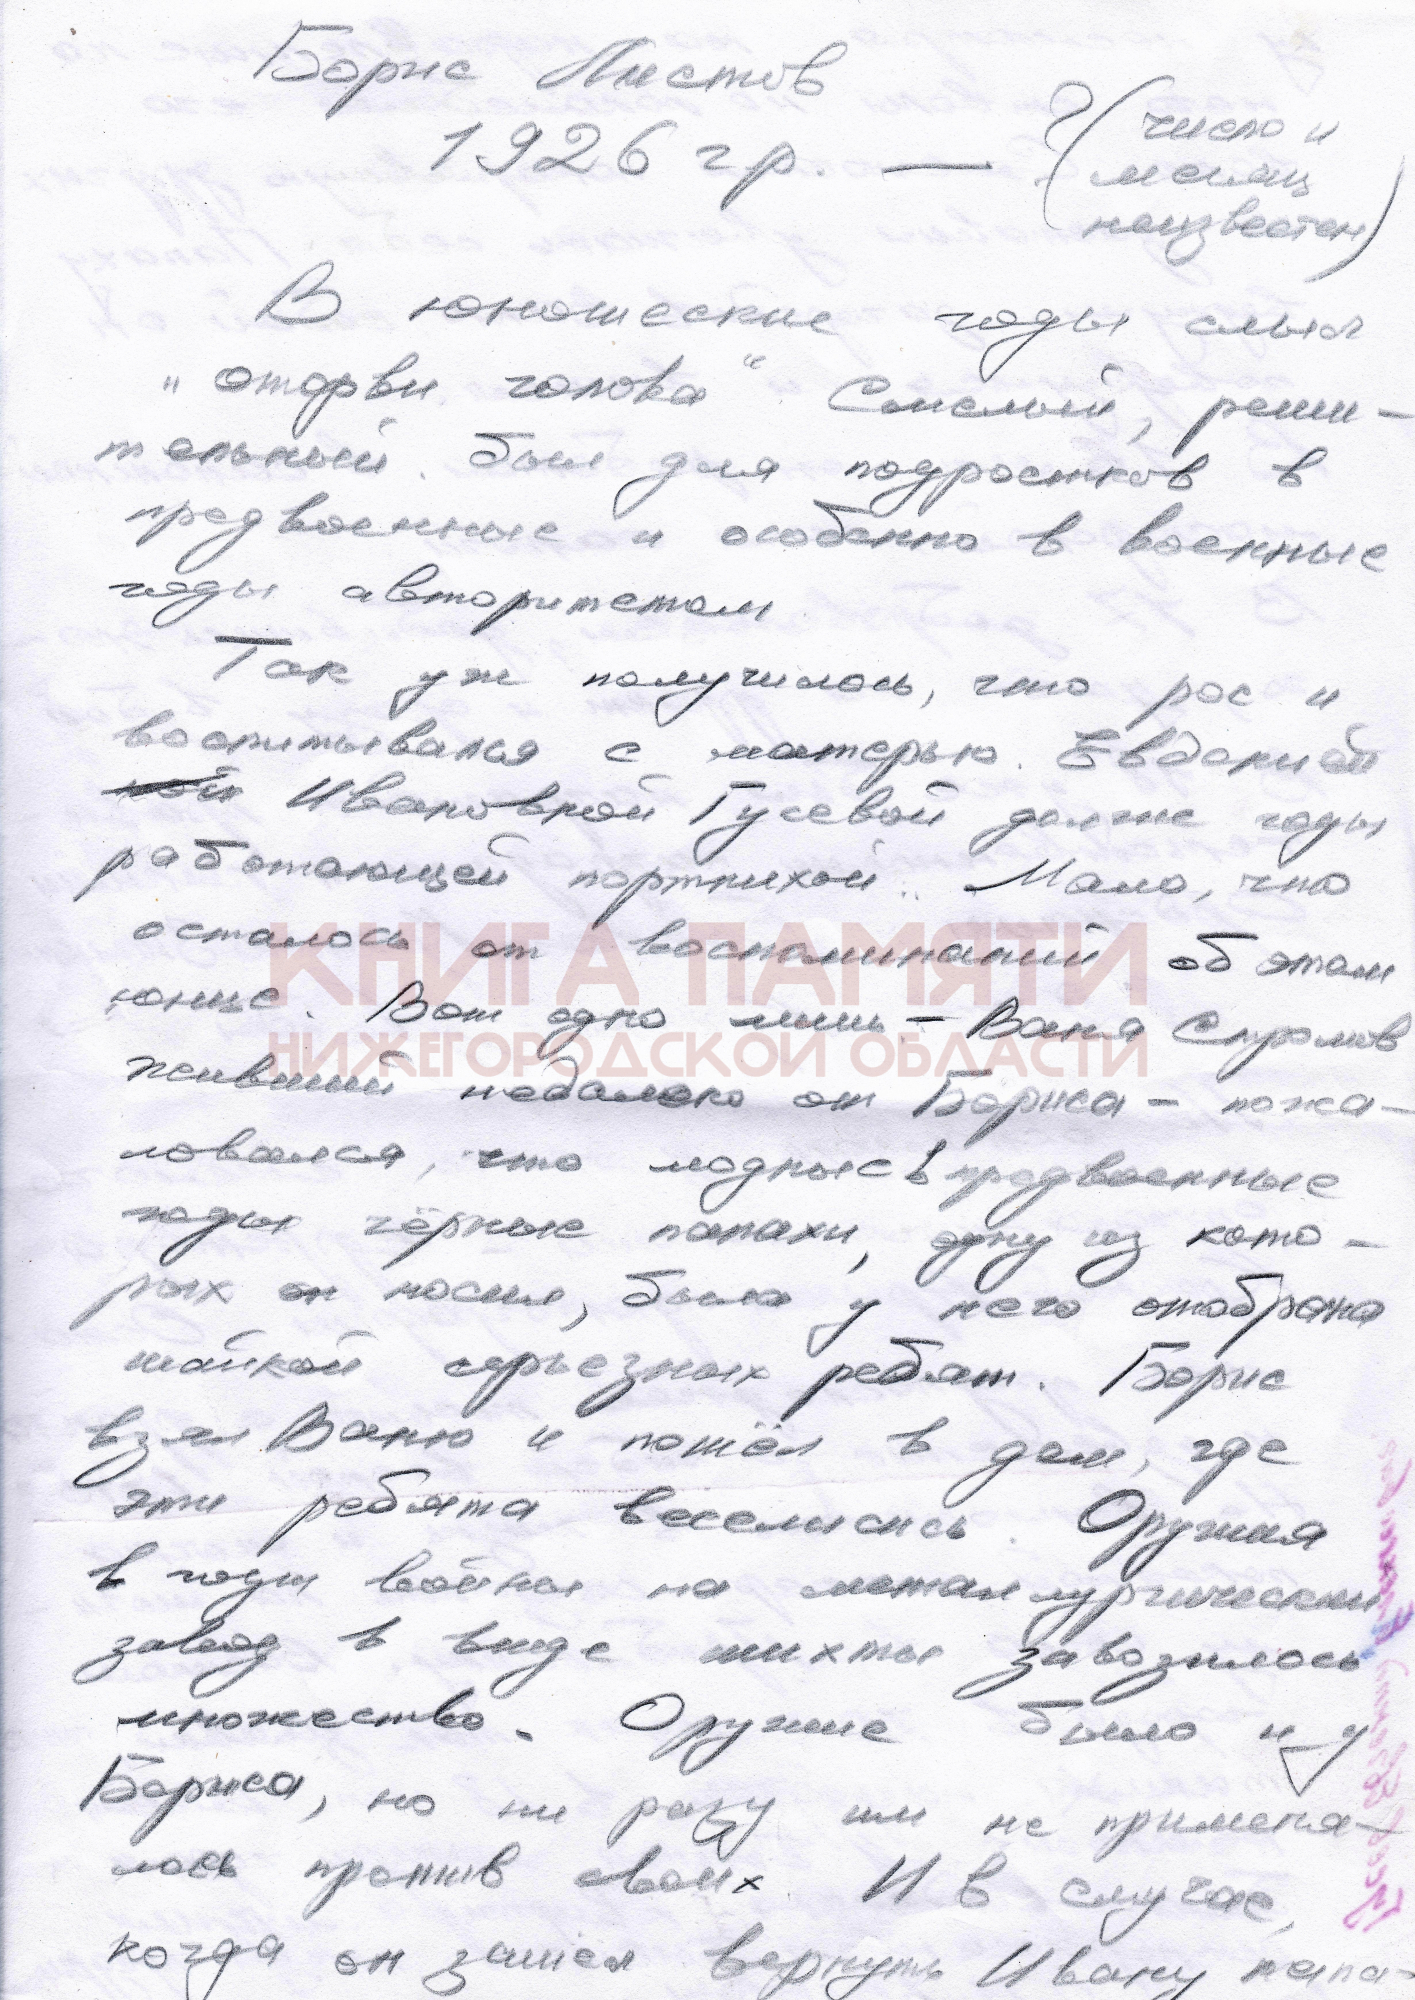 Борис Листов
1926 гр. — ? (число и
месяц
неизвестен)
В юношеские годы слыл
"оторви голова" Смелый, реши-
тельный. был для подростков в
предвоенные и особенно в военные
годы авторитетом
Так уж получилось, что рос и
воспитывался с матерью. Евдокией
Ивановной Гусевой долгие годы
работающей портнихой. Мало, что
осталось от воспоминаний об этом
юнце. Вот одно лишь - Ваня Стромов
живший недалеко от Бориса - пожа-
ловался, что модные в предвоенные
годы чёрные папахи, одну из кото-
рых он носил, была у него отобрана
шайкой серьезных ребят. Борис
взял Ваню и пошёл в дом, где
эти ребята веселились. Оружия
в годы войны на металлургический
завод в виде шихты завозилось
множество. Оружие было и у
Бориса, но ни разу им не применя-
лось против своих И в случае,
когда он зашел вернуть Ивану папа-
КНИГА ПАМЯТИ
НИЖЕГОРОДСКОЙ ОБЛАСТИ